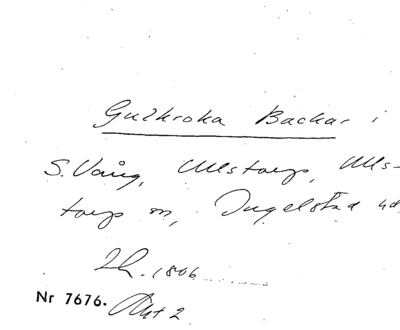 Gulkroka Backar i
S. Vång, Ullstorp, Ulls-
torp sn, Ingelstad hd
Lh. 1806
Nr 7676. Akt 2